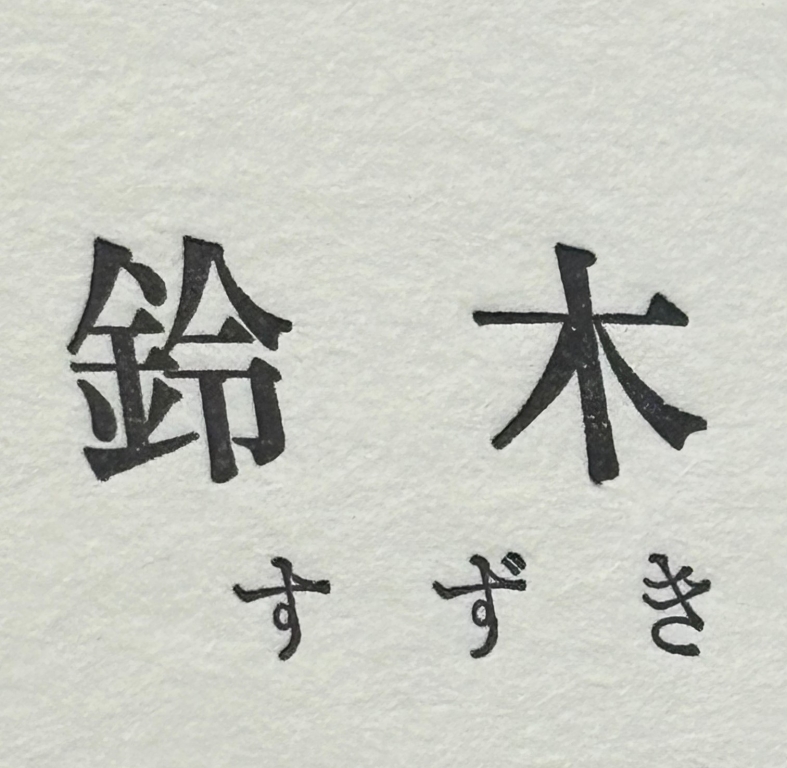 鈴木
すずき